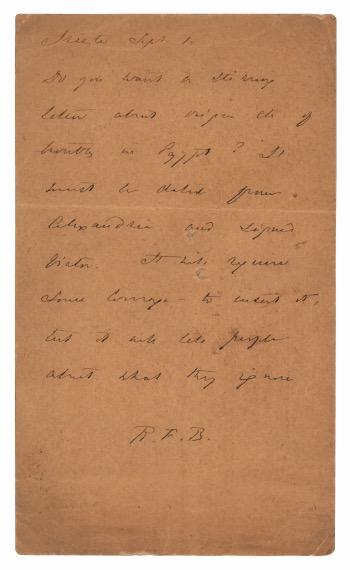 Trieste Sept 1.
Do you want a stirring
letter about origin etc of
trouble in Egypt? It
must be dated from
Alexandria and signed
Viator. It will require
some courage to insert it,
but it will tell people
about what they ignore
R. F. B.